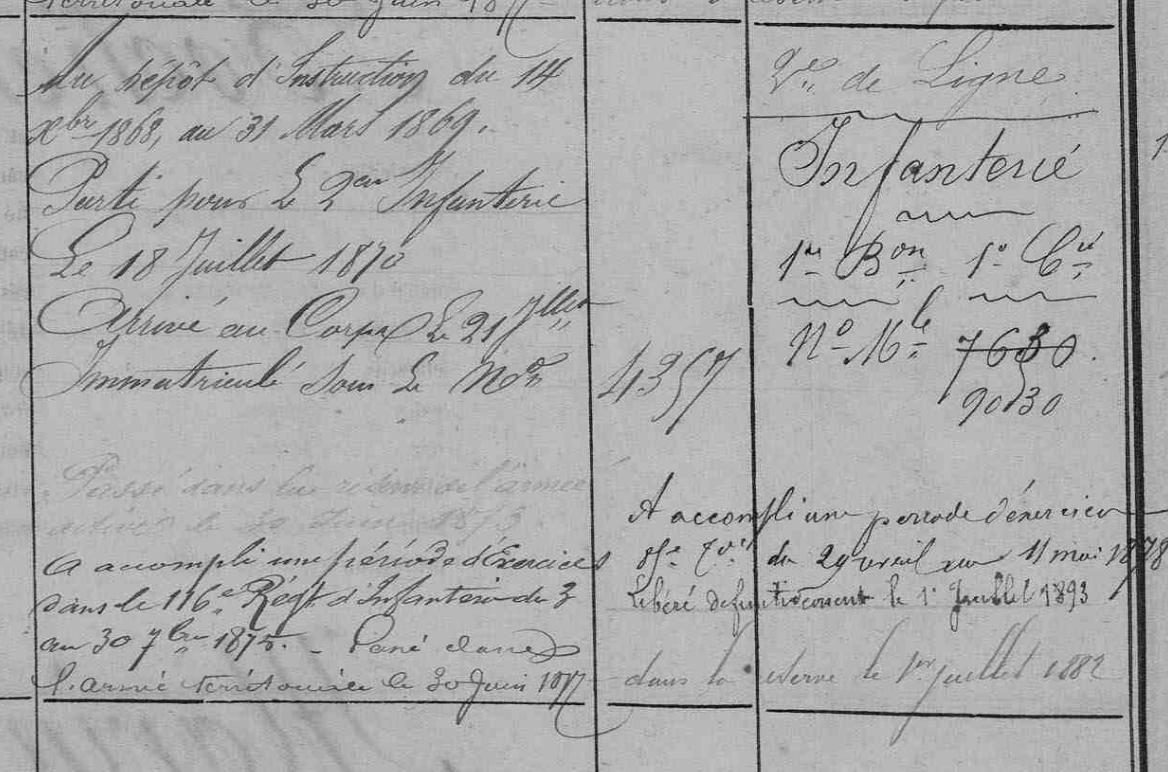 territoriale le 30 Juin 1877
Au dépôt d'Instruction du 14
Xbre 1868, au 31 Mars 1869.
Parti pour Le 2em Infanterie
Le 18 Juillet 1870
Arrivé au Corps Le 21 Jllet
Immatriculé sous Le No
4357
Passé dans la réserve de l'armée
active le 30 Juin 1873.
A accompli une période d'Exercices
dans le 116e Régt d'Infanterie du 3
au 30 7bre 1875. - Passé dans
l'armée territoriale le 30 Juin 1877
2e de Ligne
Infanterie
1er Bon 1e Cie
No Mle 7630
9030
A accompli une période d'exercices
du 29 avril au 11 mai 1878
Libéré définitivement le 1er Juillet 1893
dans la réserve le 1er juillet 1882